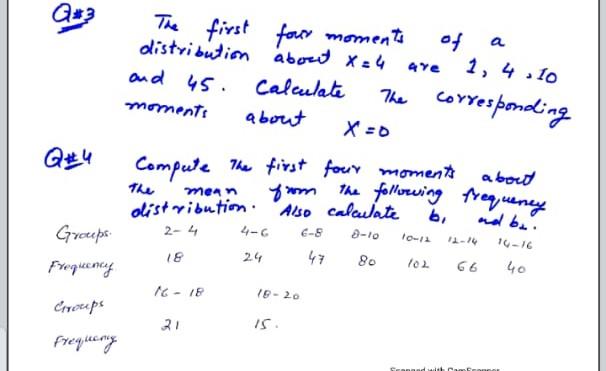 Q#3
The first four moments of a
distribution about X=4 are 1, 4, 10
and 45. Calculate The corresponding
moments about X=0
Q#4
Compute The first four moments about
The mean from the following frequency
distribution. Also calculate b₁ and b₂.
Groups 2-4 4-6 6-8 8-10 10-12 12-14 14-16
Frequency 18 24 47 80 102 66 40
Groups 16-18 18-20
Frequency 21 15.
Scanned with CamScanner